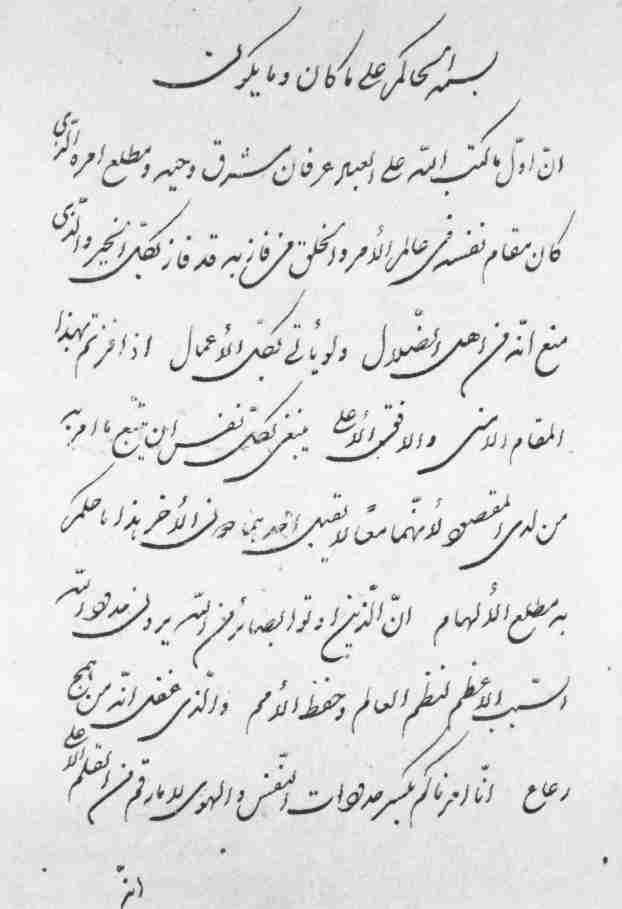 بسمه الحاكم على ما كان وما يكون
انّ اوّل ما كتب الله على العباد عرفان مشرق وحيه ومطلع امره الّذى
كان مقام نفسه فى عالم الأمر والخلق من فاز به قد فاز بكلّ الخير والّذى
منع انّه من اهل الضّلال ولو يأتى بكلّ الأعمال اذا فزتم بهذا
المقام الاسنى والافق الأعلى ينبغى لكلّ نفس ان يتّبع ما امر به
من لدى المقصود لأنّهما معًا لا يقبل احدهما دون الأخر هذا ما حكم به
مطلع الألهام انّ الّذين اوتوا بصائر من الله يرون حدود الله
السّبب الاعظم لنظم العالم وحفظ الأمم والّذى غفل انّه من همج
رعاع انّا امرناكم بكسر حدودات النّفس والهوى لا ما رقم من القلم الاعلى
انّه